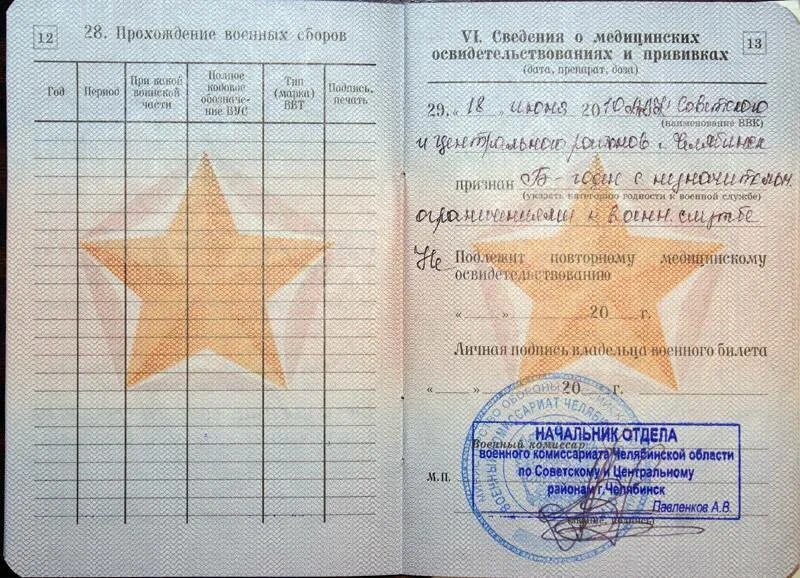 12
28. Прохождение военных сборов
Год
Период
При какой воинской части
Полное кодовое обозначе-ние ВУС
Тип (марка) ВВТ
Подпись, печать
VI. Сведения о медицинских
освидетельствованиях и прививках
13
(дата, препарат, доза)
29. „ 18 „ июня 2010 Советского
(наименование ВВК)
и Центрального районов г. Челябинск
признан „Б - годен с незначительн.
(указать категорию годности к военной службе)
ограничениями к воен. службе
Не Подлежит повторному медицинскому
освидетельствованию
« » 20 г.
Личная подпись владельца военного билета
« » 20 г.
КОМИССАРИАТ ЧЕЛЯБИНСКОЙ
Военный комиссар
НАЧАЛЬНИК ОТДЕЛА
военного комиссариата Челябинской области
по Советскому и Центральному
М.П.
районам г.Челябинск
Павленков А.В.